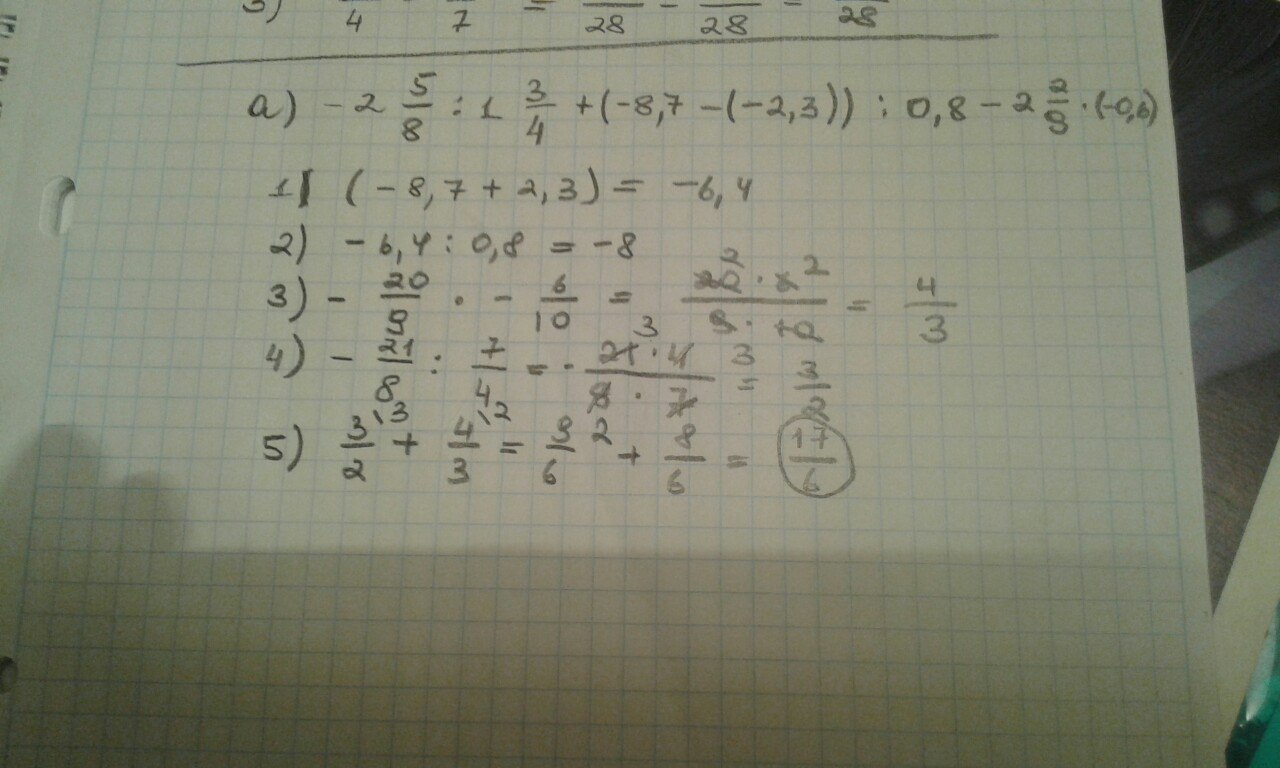 4 7 = 28 - 28 = 28
а) - 2 5/8 : 1 3/4 + (-8,7 - (-2,3)) : 0,8 - 2 2/9 · (-0,6)
1) (-8,7 + 2,3) = -6,4
2) - 6,4 : 0,8 = -8
3) - 20/9 · - 6/10 = 20 2 · 6 2 / 9 · 10 3 = 4/3
4) - 21/8 : 7/4 = - 21 3 · 4 / 8 2 · 7 = 3/2
5) 3/2 \3 + 4/3 \2 = 9/6 + 8/6 = 17/6